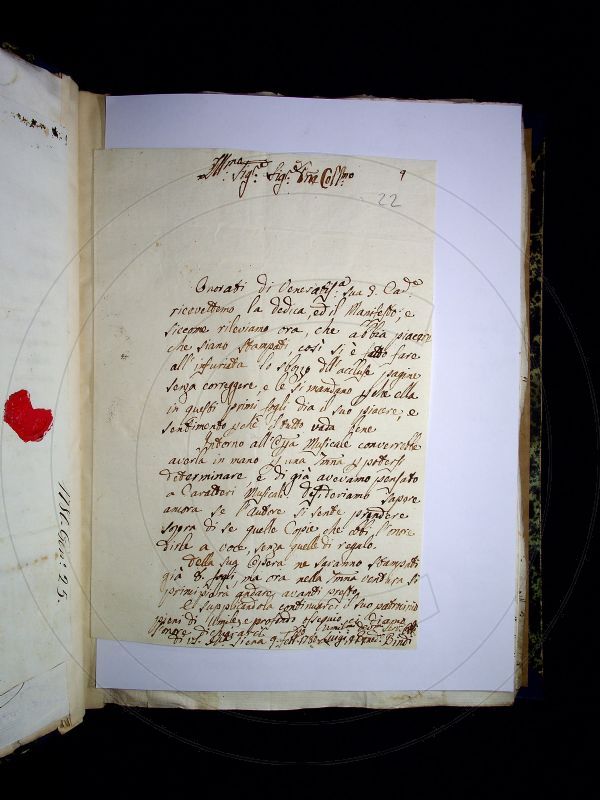 Ill.mo Sig.e Sig.e Prñ Col.mo
9
22
Onorati di Veneratis.a Sua d. Cad.e
ricevettemo la dedica, ed il Manifesto; e
siccome rileviamo ora, che abbia piacere
che siano stampati, così si è fatto fare
all' infuriata lo sbozzo dell' accluse pagine
senza correggere, e le si mandano perche ella
in questi primi fogli dia il suo piacere, e
sentimento perche il tutto vada bene
Intorno all' Musicale converrebbe
averla in mano una p poters
determinare e di già avevamo pensato
a Caratteri Musicali desideriamo sapere
ancora se l'autore si sente prendere
sopra di se quelle Copie che ebbi l'onore
dirle a voce, senza quelle di regalo.
Della sua Opera ne saranno stampati
già 8. fogli ma ora nella ventura si
primi potrà andare avanti presto,
e supplicandola continuarci il suo patrocinio
pieni di umile, e profondo ossequio
Siena 9. 1781 Luigi, e Bindi
1781. 25.